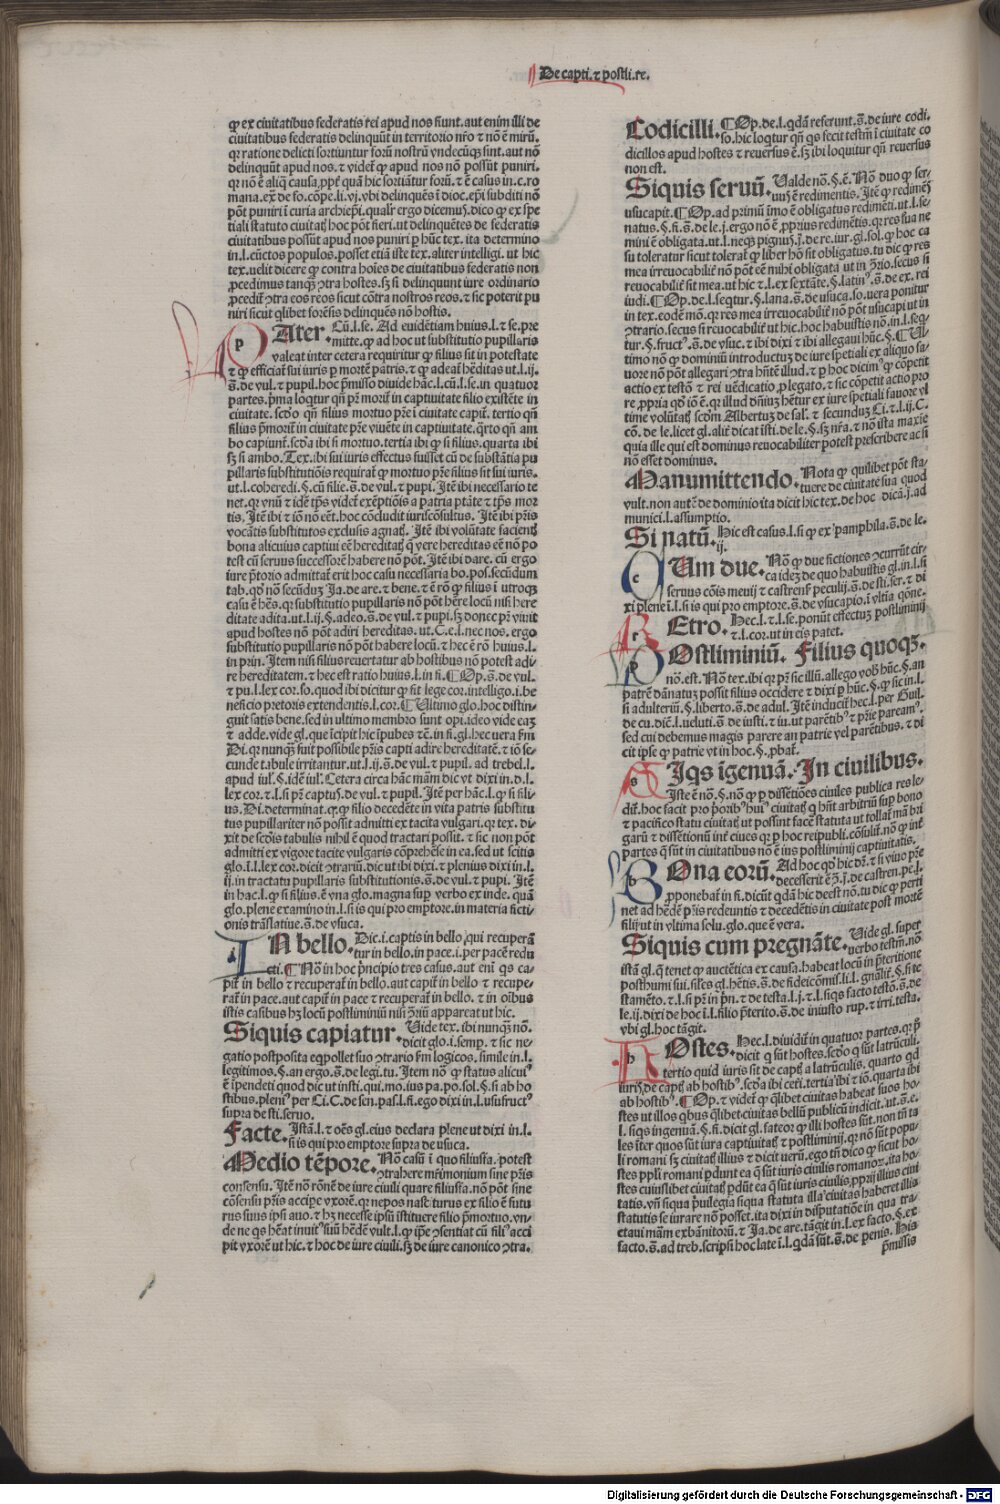 De capti. ⁊ postli. re.
ꝙ ex ciuitatibus federatis rei apud nos fiunt. aut enim illi de
ciuitatibus federatis delinquūt in territorio nr̄o ⁊ nō ē mirū.
qꝛ ratione delicti sortiuntur forū nostrū vndecūqꝫ sint. aut nō
delinquūt apud nos. ⁊ videt᷑ ꝙ apud nos nō possūt puniri.
qꝛ nō ē aliq̄ causa ꝓpt᷑ quā hic sortiātur forū. ⁊ ē casus in .c. ro
mana. ex̄ de fo. cōpe. li. vj. vbi delinquēs ī dioc. ep̄i subditi nō
pōt puniri ī curia archiep̄i. qualr̄ ergo dicemus. dico ꝙ ex spe
tiali statuto ciuitatꝭ hoc pōt fieri. ut delinquētes de federatis
ciuitatibus possūt apud nos puniri ꝑ hūc tex. ita determino
in .l. cūctos populos. posset etiā iste tex. aliter intelligi. ut hic
tex. uelit dicere ꝙ contra hoīes de ciuitatibus federatis non
ꝓcedimus tanqꝫ ꝯtra hostes. sꝫ si delinquunt iure ordinario
ꝓcedit᷑ ꝯtra eos reos sicut cōtra nostros reos. ⁊ sic poterit pu
niri sicut qlibet forēsis delinquēs nō hostis.
PAter. Cū .l. se. Ad euidētiam huius .l. ⁊ se. pre
mitte. ꝙ ad hoc ut substitutio pupillaris
valeat inter cetera requiritur ꝙ filius sit in potestate
⁊ ꝙ efficiat᷑ sui iuris ꝑ mortē patris. ⁊ ꝙ adeat᷑ hēditas ut .l. ij.
s̄. de vul. ⁊ pupil. hoc p̄misso diuide hāc .l. cū .l. se. in quatuor
partes. p̄ma loqtur qn̄ pr̄ morit᷑ in captiuitate filio existēte in
ciuitate. scd̄o qn̄ filius mortuo pr̄e ī ciuitate capit᷑. tertio qn̄
filius p̄morit᷑ in ciuitate pr̄e viuēte in captiuitate. q̄rto qn̄ am
bo capiunt᷑. scd̄a ibi si mortuo. tertia ibi ꝙ si filius. quarta ibi
sꝫ si ambo. Tex. ibi sui iuris effectus fuisset cū de substātia pu
pillaris substitutiōis requirat᷑ ꝙ mortuo pr̄e filius sit sui iuris.
ut .l. coheredi. §. cū filie. s̄. de vul. ⁊ pupi. Itē ibi necessario te
net. qꝛ vnū ⁊ idē tp̄s videt᷑ exēptiōis a patria ptāte ⁊ tp̄s mor
tis. Itē ibi ⁊ iō nō eēt. hoc cōcludit iuriscōsultus. Itē ibi pr̄is
vocatis substitutos exclusis agnatꝭ. Itē ibi volūtate facientꝭ
bona alicuius captiui eē hereditatꝭ q̄ vere hereditas eē nō po
test cū seruus successorē habere nō pōt. Itē ibi dare. cū ergo
iure p̄torio admittat᷑ erit hoc casu necessaria bo. pos. secūdum
tab. qd̄ nō secūduꝫ Ja. de are. ⁊ bene. ⁊ ē rō ꝙ filius ī utroqꝫ
casu ē hēs. qꝛ substitutio pupillaris nō pōt hr̄e locū nisi here
ditate adita. ut .l. ij. §. adeo. s̄. de vul. ⁊ pupi. sꝫ donec pr̄ viuit
apud hostes nō pōt adiri hereditas. ut .C. e. l. nec nos. ergo
substitutio pupillaris nō pōt habere locū. ⁊ hec ē rō huius .l.
in prin. Item nisi filius reuertatur ab hostibus nō potest adi
re hereditatem. ⁊ hec est ratio huius .l. in fi. ¶Op. s̄. de vul.
⁊ pu. l. lex cor. so. quod ibi dicitur ꝙ fit lege cor. intelligo. i. be
neficio pretoris extendentis .l. cor. ¶Vltimo glo. hoc distin-
guit satis bene. sed in ultimo membro sunt opi. ideo vide eaꝫ
⁊ adde. vide gl. que īcipit hic īpubes tē. in fi. gl. hec uera fm̄
Di. qꝛ nunqꝫ fuit possibile pr̄is capti adire hereditatē. ⁊ iō se-
cunde tabule irritantur. ut .l. ij. s̄. de vul. ⁊ pupil. ad trebel. l.
apud iul'. §. idē iul'. Cetera circa hāc mām dic vt dixi in .d. l.
lex cor. ⁊ .l. si pr̄ captus. de vul. ⁊ pupil. Itē per hāc .l. ꝙ si fili-
us. Di. determinat. ꝙ ꝙ filio decedēte in vita patris substitu
tus pupillariter nō possit admitti ex tacita vulgari. qꝛ tex. di-
xit de scd̄is tabulis nihil ē quod tractari possit. ⁊ sic non pōt
admitti ex vigore tacite vulgaris cōprehēse in ea. sed ut scitis
glo. ī .l. lex cor. dicit ꝯtrariū. dic ut ibi dixi. ⁊ plenius dixi in .l.
ij. in tractatu pupillaris substitutionis. s̄. de vul. ⁊ pupi. Itē
in hac .l. ꝙ si filius. ē vna glo. magna sup̄ verbo ex inde. quā
glo. plene examino in .l. si is qui pro emptore. in materia ficti-
onis trāslatiue. s̄. de vsuca.
IN bello. Dic. i. captis in bello qui recuperā
tur in bello. in pace. i. per pacē redu
cti. ¶Nō in hoc p̄ncipio tres casus. aut enī qs ca-
pit᷑ in bello ⁊ recuperat᷑ in bello. aut capit᷑ in bello ⁊ recupe-
rat᷑ in pace. aut capit᷑ in pace ⁊ recuperat᷑ in bello. ⁊ in oībus
istis casibus hꝫ locū postliminiū nisi ꝯ̄riū appareat ut hic.
Siquis capiatur. Vide tex. ibi nunqꝫ nō.
dicit glo. i. semp. ⁊ sic ne-
gatio postposita eqpollet suo ꝯtrario fm̄ logicos. simile in .l.
legitimos. §. an ergo. s̄. de legi. tu. Item nō ꝙ status alicui᷒
ē īpendēti quod dic ut insti. qui. mo. ius pa. po. sol. §. si ab ho
stibus. pleni᷒ per Ci. C. de sen. pas. l. fi. ego dixi in .l. usufruct᷒
supra de sti. seruo.
Facte. Istā .l. ⁊ oēs gl. eius declara plene ut dixi in .l.
si is qui pro emptore supra de usuca.
Medio tēpore. Nō casū ī quo filiusfa. potest
ꝯtrahere mr̄imonium sine pr̄is
consensu. Itē nō rōnē de iure ciuili quare filiusfa. nō pōt sine
cōsensu pr̄is accipe vxorē. qꝛ nepos nascit᷑urus ex filio ē futu
rus suus ipsi auo. ⁊ hꝫ necesse ipsū īstituere filio p̄mortuo. vn-
de ne qs hēat inuit᷒ suū hēdē vult .l. ꝙ ip̄e ꝯsentiat cū fili᷒ acci
pit vxorē ut hic. ⁊ hoc de iure ciuili. sꝫ de iure canonico ꝯtra.
Codicilli. ¶Op. de .l. qdā referunt. s̄. de iure codi.
so. hic loqtur qn̄ qs fecit testm̄ ī ciuitate co
dicillos apud hostes ⁊ reuersus ē. sꝫ ibi loquitur qn̄ reuersus
non est.
Siquis seruū. Valde nō. §. ē. Nō duo ꝙ ser-
uus ē redimentis. Itē ꝙ redimēs
usucapit. ¶Op. ad primū īmo ē obligatus redimēti. ut .l. se-
natus. §. fi. s̄. de le. j. ergo nō ē ꝓprius redimētis. qꝛ res sua ne
mini ē obligata. ut .l. neqꝫ pignus. j. de re. iur. gl. sol. ꝙ hoc ca
su toleratur sicut tolerat᷑ ꝙ liber hō sit obligatus. tu dic ꝙ res
mea irreuocabilit᷑ nō pōt eē mihi obligata ut in ꝯ̄rio. secus si
reuocabilit᷑ sit mea. ut hic ⁊ .l. ex sextāte. §. latin᷒. s̄. de ex. rei
iudi. ¶Op. de .l. seqtur. §. lana. s̄. de usuca. so. uera ponitur
in tex. eodē mō. qꝛ res mea irreuocabilit᷑ nō pōt usucapi ut in
ꝯtrario. secus si reuocabilit᷑ ut hic. hoc habuistis nō. in .l. seq-
tur. §. fruct᷒. s̄. de vsuc. ⁊ ibi dixi ⁊ ibi allegaui hūc. §. ¶Vl-
timo nō ꝙ dominiū introductuꝫ de iure spetiali ex aliquo fa-
uore nō pōt allegari ꝯtra hn̄tē illud. ⁊ ꝑ hoc dicim᷒ ꝙ cōpetit
actio ex testō ⁊ rei uēdicatio ꝓ legato. ⁊ sic cōpetit actio pro
re ꝓpria qd̄ iō ē. qꝛ illud dn̄iuꝫ hētur ex iure spetiali fauore vl
time volūtatꝭ scd̄m Albertuꝫ de sal'. ⁊ secunduꝫ Ci. ⁊ .l. ij. C.
cō. de le. licet gl. alit᷑ dicat īsti. de le. §. sꝫ nr̄a. ⁊ nō ista maxīe
quia ille qui est dominus reuocabiliter potest prescribere ac si
nō esset dominus.
Manumittendo. Nota ꝙ quilibet pōt sta-
tuere de ciuitate sua quod
vult. non autē de dominio ita dicit hic tex. de hoc dicā .j. ad
munici. l. assumptio.
Si natū. Hic est casus .l. si ꝙ ex pamphila. s̄. de le.
ij.
CUm due. Nō ꝙ due fictiones ꝯcurrūt cir-
ca idez de quo habuistis gl. in .l. si
seruus cōis meuij ⁊ castrens᷒ peculij. s̄. de sti. ser. ⁊ di
xi plene ī .l. si is qui pro emptore. s̄. de vsucapio. ī vltīa qōne.
REtro. Hec .l. ⁊ .l. se. ponūt effectuꝫ postliminij
⁊ .l. cor. ut in eis patet.
POstliminiū. Filius quoqꝫ.
nō. est. Nō tex. ibi qꝛ pr̄ sic illū. allego vob̄ hūc. §. an
patrē dānatuꝫ possit filius occidere ⁊ dixi ꝑ hūc. §. ꝙ sic in .l.
si adulteriū. §. liberto. s̄. de adul. Itē inducit᷑ hec .l. per Guil.
de cu. dic̄e .l. ueluti. s̄. de iusti. ⁊ iu. ut parētib᷒ ⁊ pr̄ie paream᷒.
sed cui debemus magis parere an patrie vel parētibus. ⁊ di
cit ipse ꝙ patrie vt in hoc. §. ꝓbat᷑.
SIqs īgenuā. In ciuilibus.
Iste ē nō. §. nō ꝙ ꝑ dissētiōes ciuiles publica res le-
dit᷑. hoc facit pro ꝓorib᷒ hui᷒ ciuitatꝭ q hn̄t arbitriū sup̄ bono
⁊ pacifico statu ciuitatꝭ ut possint facē statuta ut tollat᷑ mā bri
garū ⁊ dissētionū int᷑ ciues qꝛ ꝑ hoc reipubli. cōsulit᷑. nō ꝙ int᷑
partes q̄ sūt in ciuitatibus nō ē ius postliminij captiuitatis.
BOna eorū. Ad hoc qd̄ hic dr̄. ⁊ si viuo pr̄e
decesserit ē ꝯ̄. j. de castren. pe. l.
ꝓponebat᷑ in fi. dicūt qdā hic deest nō. tu dic ꝙ perti
net ad hēdē pr̄is redeuntis ⁊ decedētis in ciuitate post mortē
filij ut in vltima solu. glo. que ē vera.
Siquis cum pregnāte. Vide gl. super
verbo testm̄. nō
istā gl. q̄ tenet ꝙ auctētica ex causa. habeat locū in p̄teritione
posthumi sui. siſes gl. hētis. s̄. de fideicōmis. li. l. gn̄alit᷑. §. si te
stamēto. ⁊ .l. si pr̄ in p̄n. ⁊ de testa. l. j. ⁊ .l. siqs facto testō. s̄. de
le. ij. dixi de hoc ī .l. filio p̄terito. s̄. de iniusto rup. ⁊ irri. testa.
vbi gl. hoc tāgit.
HOstes. Hec .l. diuidit᷑ in quatuor partes. qꝛ p̄
dicit q sūt hostes. scd̄o q sūt latrūculi.
tertio quid iuris sit de captꝭ a latrūculis. quarto qd
iurisˀ. de captꝭ ab hostib᷒. scd̄a ibi ceti. tertia ibi ⁊ iō. quarta ibi
ab hostib᷒. ¶Op. ⁊ videt᷑ ꝙ qlibet ciuitas habeat suos ho-
stes ut illos qbus qlibet ciuitas bellū publicū indicit. ut .s̄. e.
l. siqs ingenuā. §. fi. dicit gl. fateor ꝙ illi hostes sūt. non tn̄ ta
les īter quos sūt iura captiuitatꝭ ⁊ postliminij. qꝛ nō sūt popu-
li romani sꝫ ciuitatꝭ illius ⁊ dicit uerū. ego tn̄ dico ꝙ sicut ho-
stes ppli romani ꝑdunt ea q̄ sūt iuris ciuilis romanoꝝ. ita ho-
stes cuiuslibet ciuitatꝭ ꝑdūt ea q̄ sūt iuris ciuilis ꝓprij illius ciui
tatis. vn̄ siqua p̄uilegia siqua statuta illa ciuitas haberet illis
statutis se iurare nō posset. ita dixi in disputatiōe in qua tra-
ctaui mām exbānitorū. ⁊ Ja. de are. tāgit in .l. ex facto. §. ex
facto. s̄. ad treb. scripsi hoc late ī .l. qdā sūt. s̄. de penis. His
p̄missis
Digitalisierung gefördert durch die Deutsche Forschungsgemeinschaft - DFG